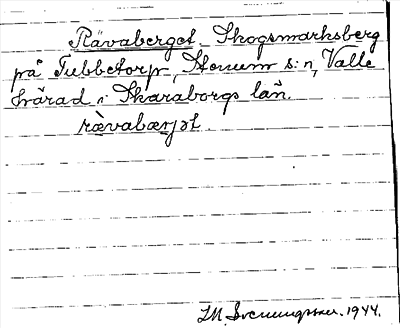 Rävaberget. Skogsmarksberg
på Tubbetorp, Stenum s:n, Valle
härad i Skaraborgs län.
rävabærjət
1944.